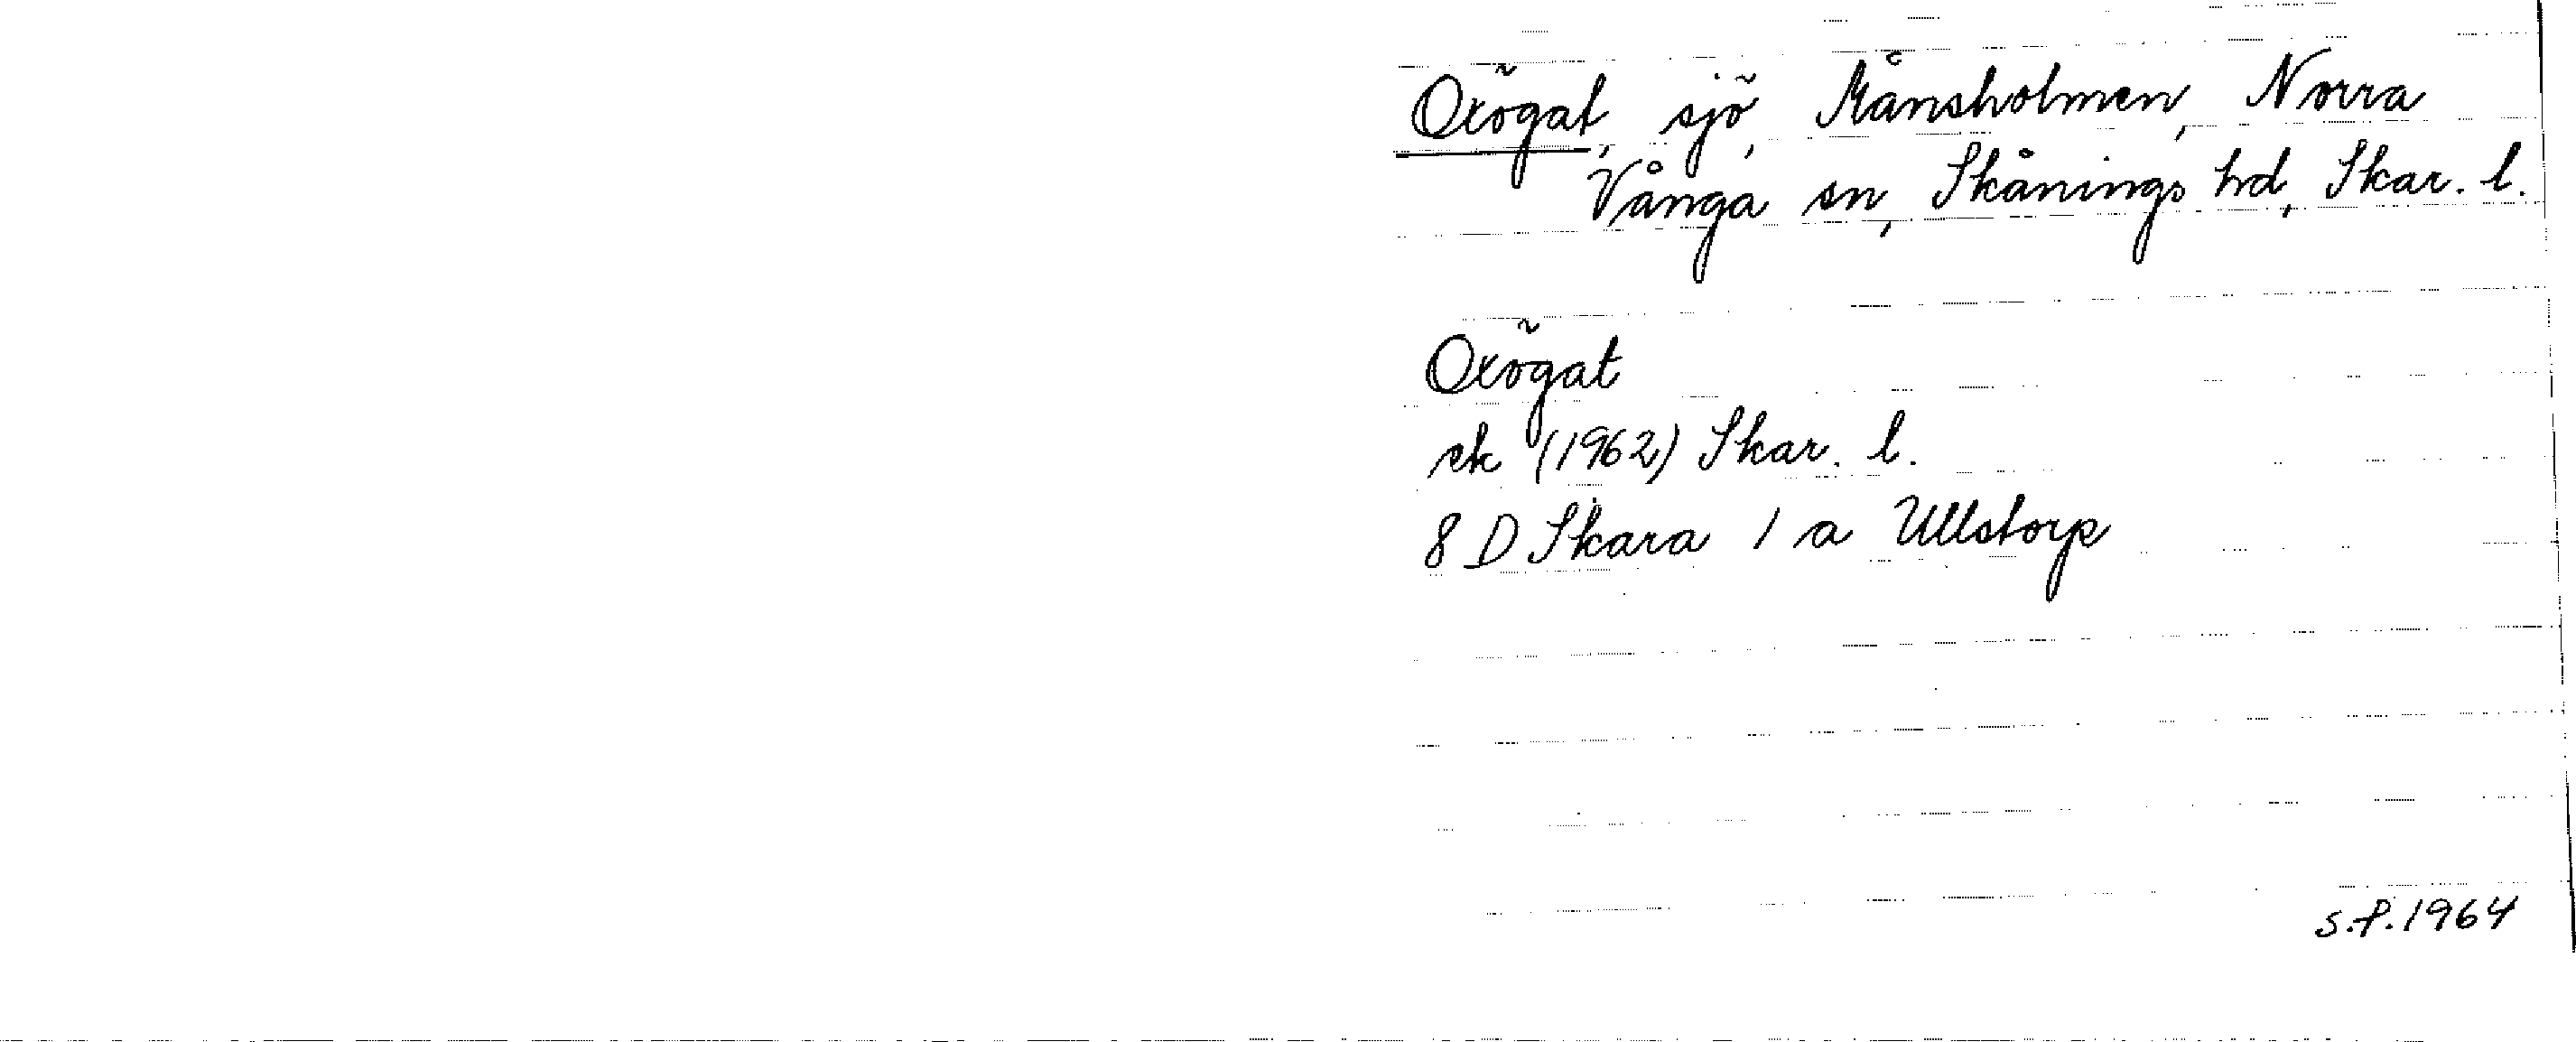 Oxögat, sjö, Månsholmen, Norra
Vånga sn, Skånings hd, Skar. l.
Oxögat
ek (1962) Skar. l.
8 D Skara 1 a Ullstorp
S.P. 1964